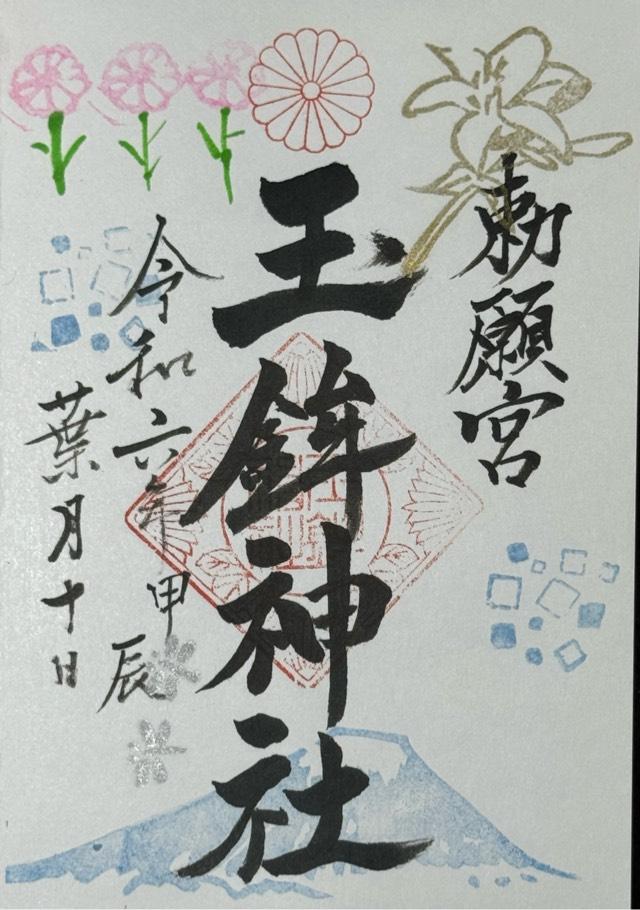 勅願宮
玉鉾神社
令和六年甲辰
葉月十日